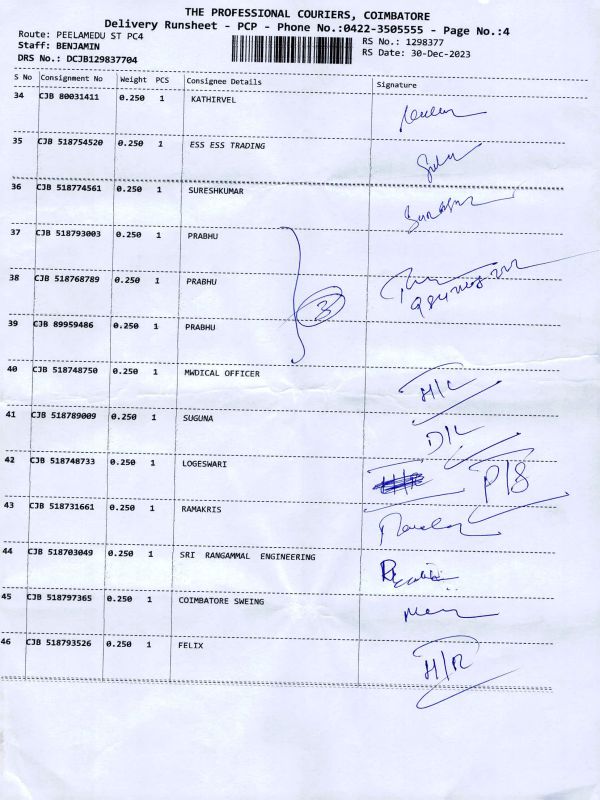 THE PROFESSIONAL COURIERS, COIMBATORE
Delivery Runsheet - PCP - Phone No.:0422-3505555 - Page No.:4
Route: PEELAMEDU ST PC4
RS No.: 1298377
Staff: BENJAMIN
RS Date: 30-Dec-2023
DRS No.: DCJB129837704
S No Consignment No Weight PCS Consignee Details Signature
34 CJB 80031411 0.250 1 KATHIRVEL
35 CJB 518754520 0.250 1 ESS ESS TRADING
36 CJB 518774561 0.250 1 SURESHKUMAR
37 CJB 518793003 0.250 1 PRABHU
38 CJB 518768789 0.250 1 PRABHU
3
39 CJB 89959486 0.250 1 PRABHU
40 CJB 518748750 0.250 1 MWDICAL OFFICER H/L
41 CJB 518789009 0.250 1 SUGUNA D/L
42 CJB 518748733 0.250 1 LOGESWARI P/S
43 CJB 518731661 0.250 1 RAMAKRIS
44 CJB 518703049 0.250 1 SRI RANGAMMAL ENGINEERING
45 CJB 518797365 0.250 1 COIMBATORE SWEING
46 CJB 518793526 0.250 1 FELIX H/R